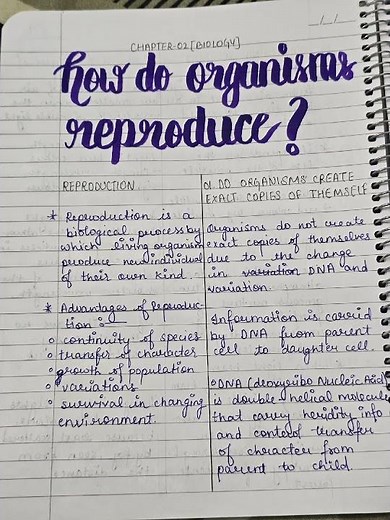 CHAPTER-02 [BIOLOGY]
how do organisms
reproduce?
REPRODUCTION
* Reproduction is a
biological process by
which living organism
produce new individual
of their own kind.
* Advantages of Reproduc-
tion :-
continuity of species
transfer of character
growth of population
variations
survival in changing
environment.
01. DO ORGANISMS CREATE
EXACT COPIES OF THEMSELF
Organisms do not create
exact copies of themselves
due to the change
in variation DNA and
variation.
Information is carried
by DNA from parent
cell to daughter cell.
DNA (deoxyribo Nucleic Acid)
is double helical molecule
that carry heridity info
and control transfer
of character from
parent to child.